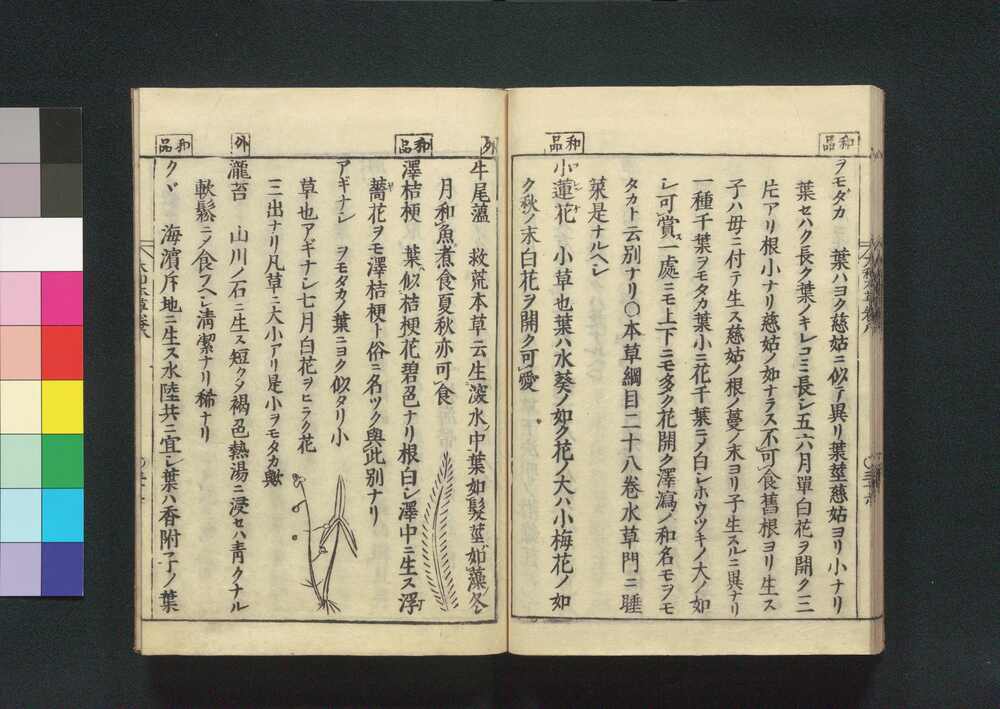 和品
ヲモダカ 葉ハヨク慈姑ニ似テ異リ葉莖慈姑ヨリ小ナリ
葉セハク長ク葉ノキレコミ長シ五六月單白花ヲ開ク三
片アリ根小ナリ慈姑ノ如ナラス不可食舊根ヨリ生ス
子ハ毋ニ付テ生ス慈姑ノ根ノ蔓ノ末ヨリ子生スルニ異ナリ
一種千葉ヲモタカ葉小ニ花千葉ニノ白シホウツキノ大ノ如
シ可賞一處ニモ上下ニモ多ク花開ク澤瀉ノ和名モヲモ
タカト云別ナリ○本草綱目二十八巻水草門ニ睡
菜是ナルヘシ
和品
小蓮花 小草也葉ハ水葵ノ如ク花ノ大ハ小梅花ノ如
ク秋ノ末白花ヲ開ク可愛
外
牛尾薀 救荒本草云生深水中葉如髮莖如藻冬
月和魚煮食夏秋亦可食
和品
澤桔梗 葉似桔梗花碧色ナリ根白シ澤中ニ生ス浮
薔花ヲモ澤桔梗ト俗ニ名ツク與此別ナリ
アギナシ ヲモダカノ葉ニヨク似タリ小
草也アギナシ七月白花ヲヒラク花
三出ナリ凡草ニ大小アリ是小ヲモタカ歟
外
瀧苔 山川ノ石ニ生ス短クタ褐色熱湯ニ浸セハ青クナル
軟鬆ニノ食フヘシ清潔ナリ稀ナリ
和品
クヾ 海濱斥地ニ生ス水陸共ニ宜シ葉ハ香附子ノ葉